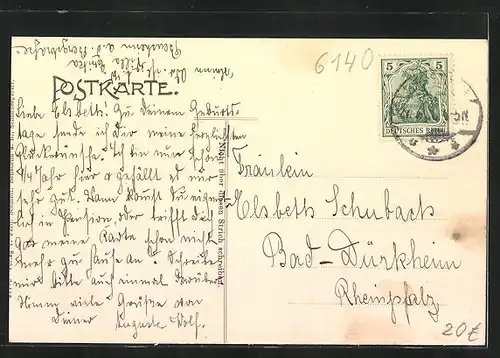 6140
POSTKARTE.
5 5
DEUTSCHES REICH
Liebe Elsbeth! Zu Deinem Geburts-
tage sende ich Dir meine herzlichsten
Glückwünsche. Ich bin nun schon
1/4 Jahr hier & gefällt es mir
sehr gut. Wann kommst Du eigent-
lich in Pension oder trifft Dich
gar meine Karte schon nicht
mehr zu Hause an? Schreibe
mir bitte auch einmal darüber
viele Grüße von
Deiner Auguste Wolf.
Nicht über diesen Strich schreiben!
Fräulein
Elsbeth Schubach
Bad-Dürkheim
Rheinpfalz
20€